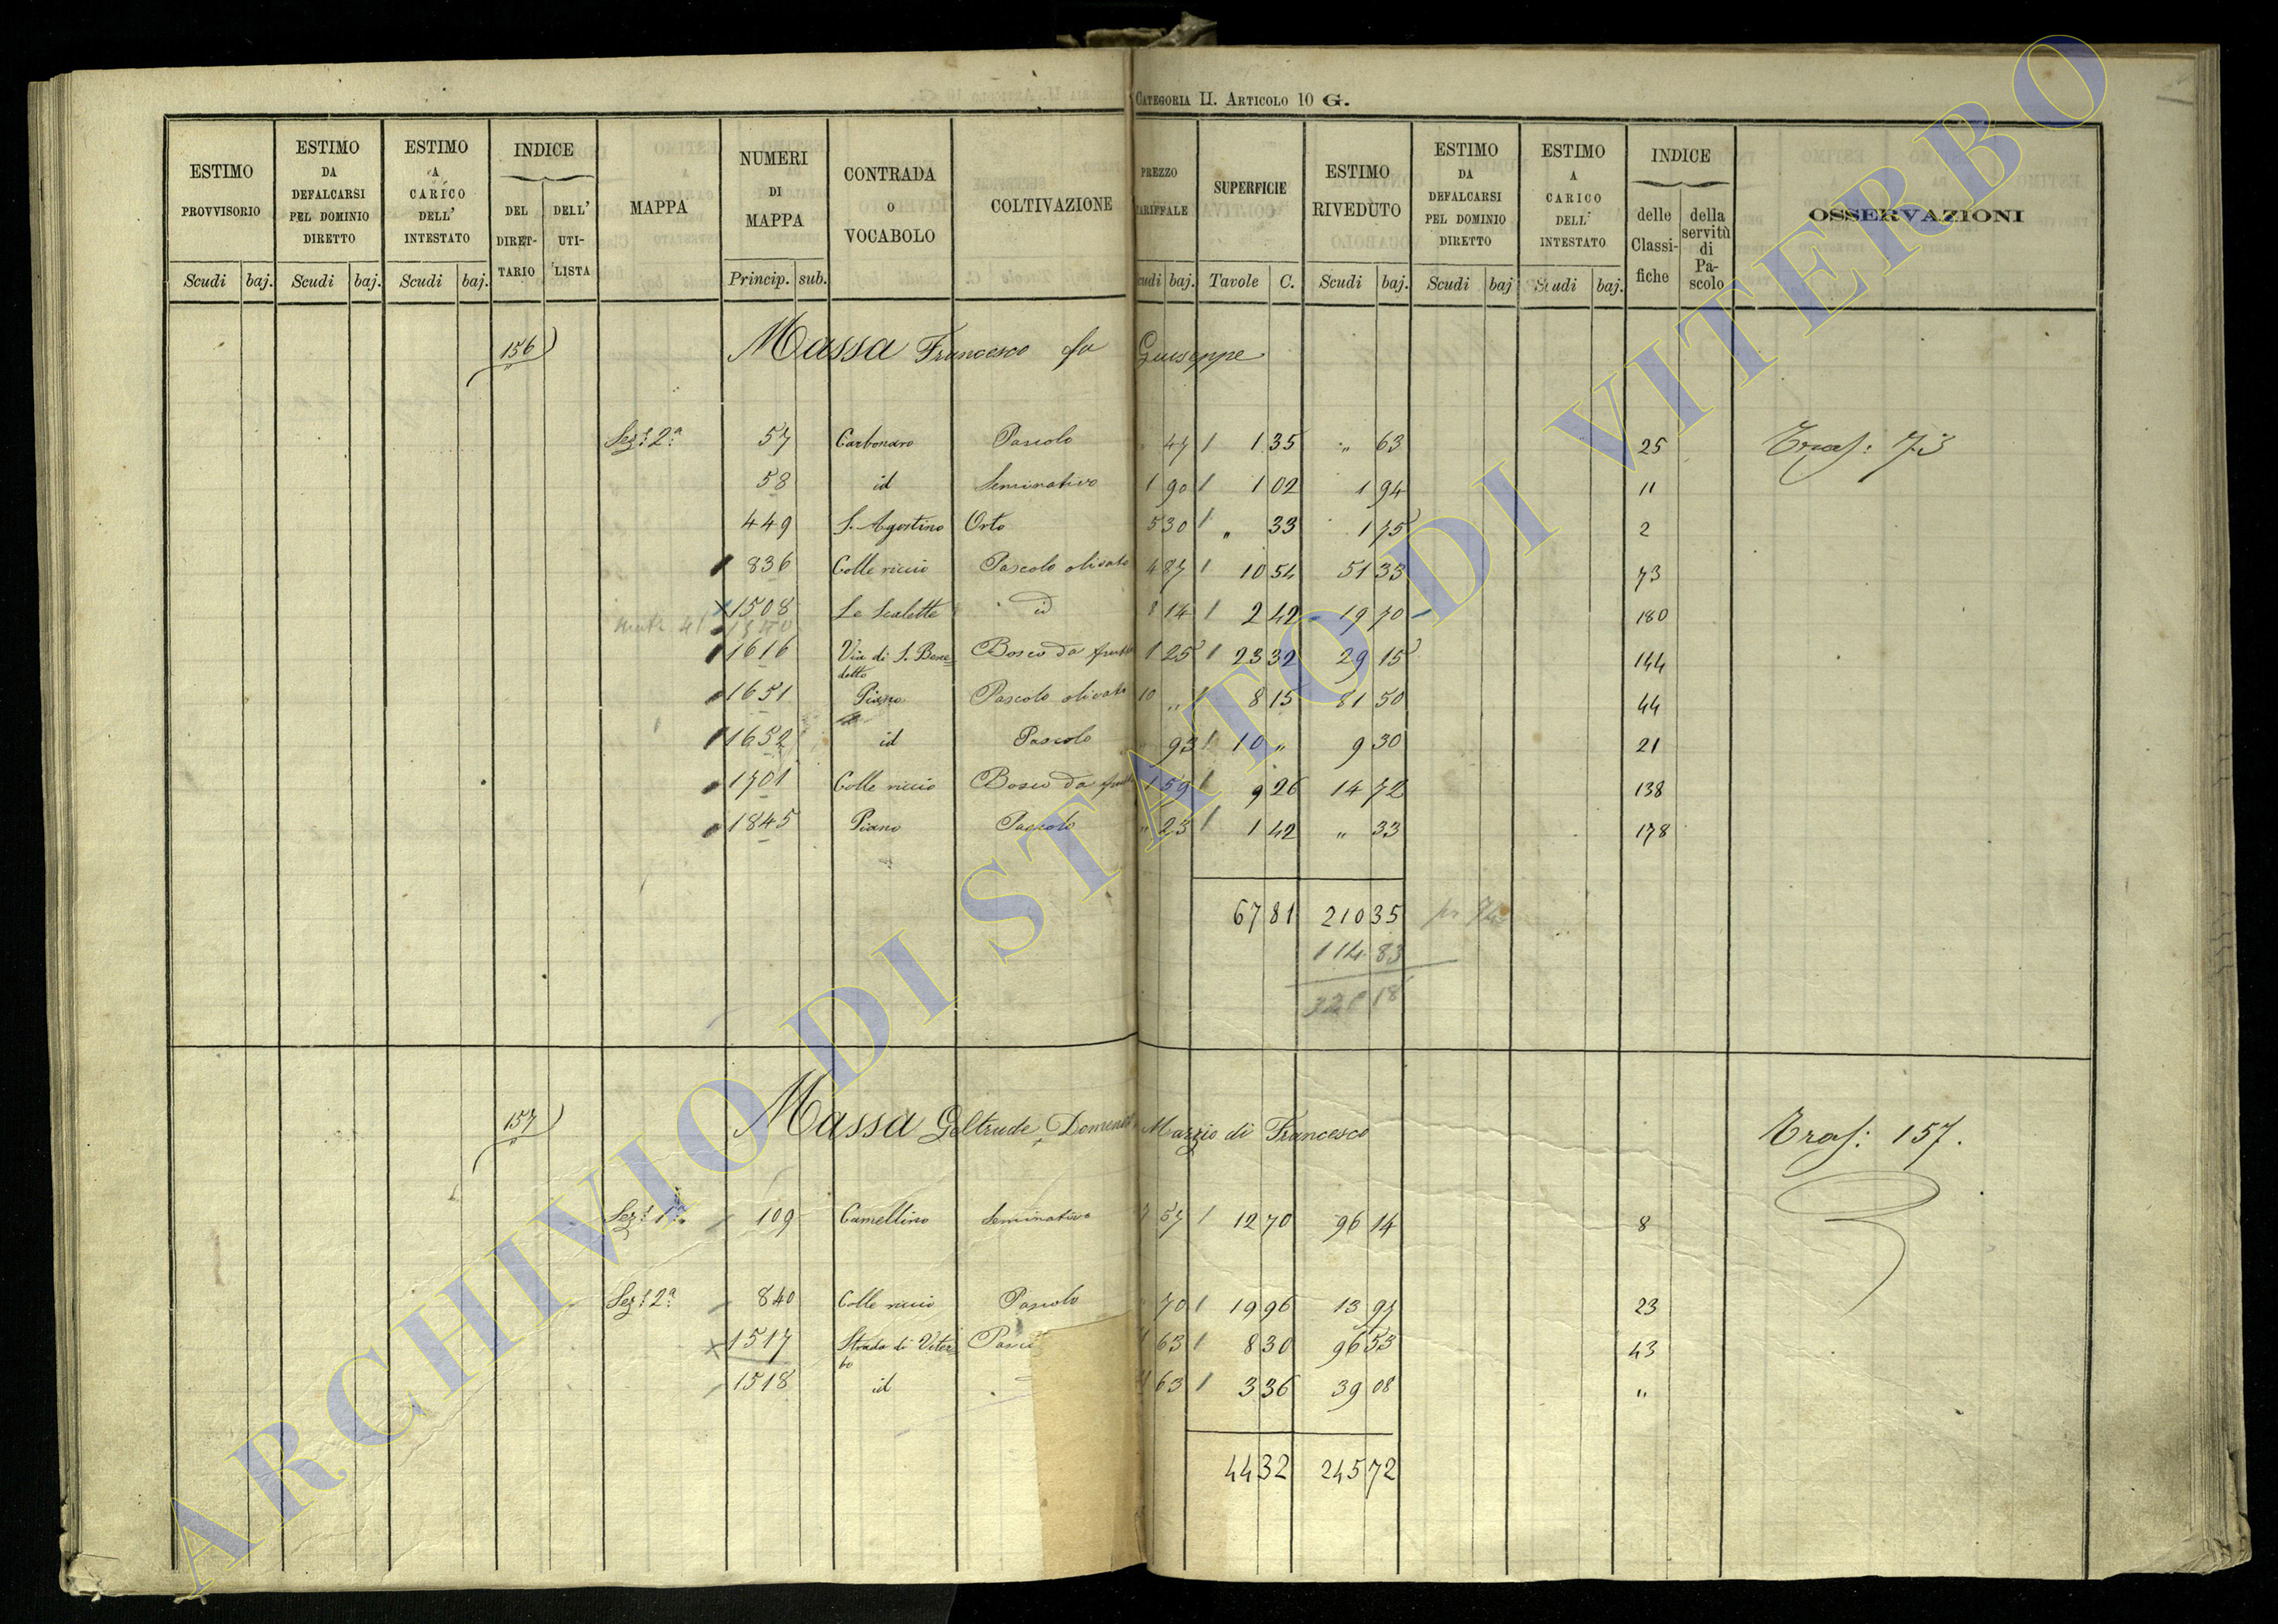 CATEGORIA II. ARTICOLO 10 G.
ESTIMO PROVVISORIO Scudi baj.
ESTIMO DA DEFALCARSI PEL DOMINIO DIRETTO Scudi baj.
ESTIMO A CARICO DELL' INTESTATO Scudi baj.
INDICE DEL DIRETTARIO DELL' UTILISTA
MAPPA
NUMERI DI MAPPA Princip. sub.
CONTRADA O VOCABOLO
COLTIVAZIONE
PREZZO TARIFFALE Scudi baj.
SUPERFICIE Tavole C.
ESTIMO RIVEDUTO Scudi baj.
ESTIMO DA DEFALCARSI PEL DOMINIO DIRETTO Scudi baj
ESTIMO A CARICO DELL' INTESTATO Scudi baj.
INDICE delle Classifiche della servitù di Pascolo
OSSERVAZIONI
156) Massa Francesco fu Giuseppe
Sez: 2ª 57 Carbonaro Pascolo " 47 1 35 " 63 25 Tras: 73
58 id Seminativo 1 90 1 02 1 94 11
449 S. Agostino Orto 5 30 " 33 1 75 2
836 Colle riccio Pascolo olivato 4 87 10 54 51 33 73
1508 Le Scalette id 8 14 2 42 19 70 180
1616 Via di S. Bene= detto Bosco da frutto 1 25 23 32 29 15 144
1651 Piano Pascolo olivato 10 " 8 15 81 50 44
1652 id Pascolo " 93 10 " 9 30 21
1701 Colle riccio Bosco da frutto 1 59 9 26 14 72 138
1845 Piano Pascolo " 23 1 42 " 33 178
67 81 210 35
114 83
157) Massa Geltrude, Domenico, Mazzio di Francesco Tras: 157.
Sez: 1ª 109 Camellino Seminativo 7 57 12 70 96 14 8
Sez: 2ª 840 Colle riccio Pascolo " 70 19 96 13 97 23
1517 Strada di Viter= bo 63 8 30 96 53 43
1518 id 63 3 36 39 08 "
44 32 245 72
ARCHIVIO DI STATO DI VITERBO